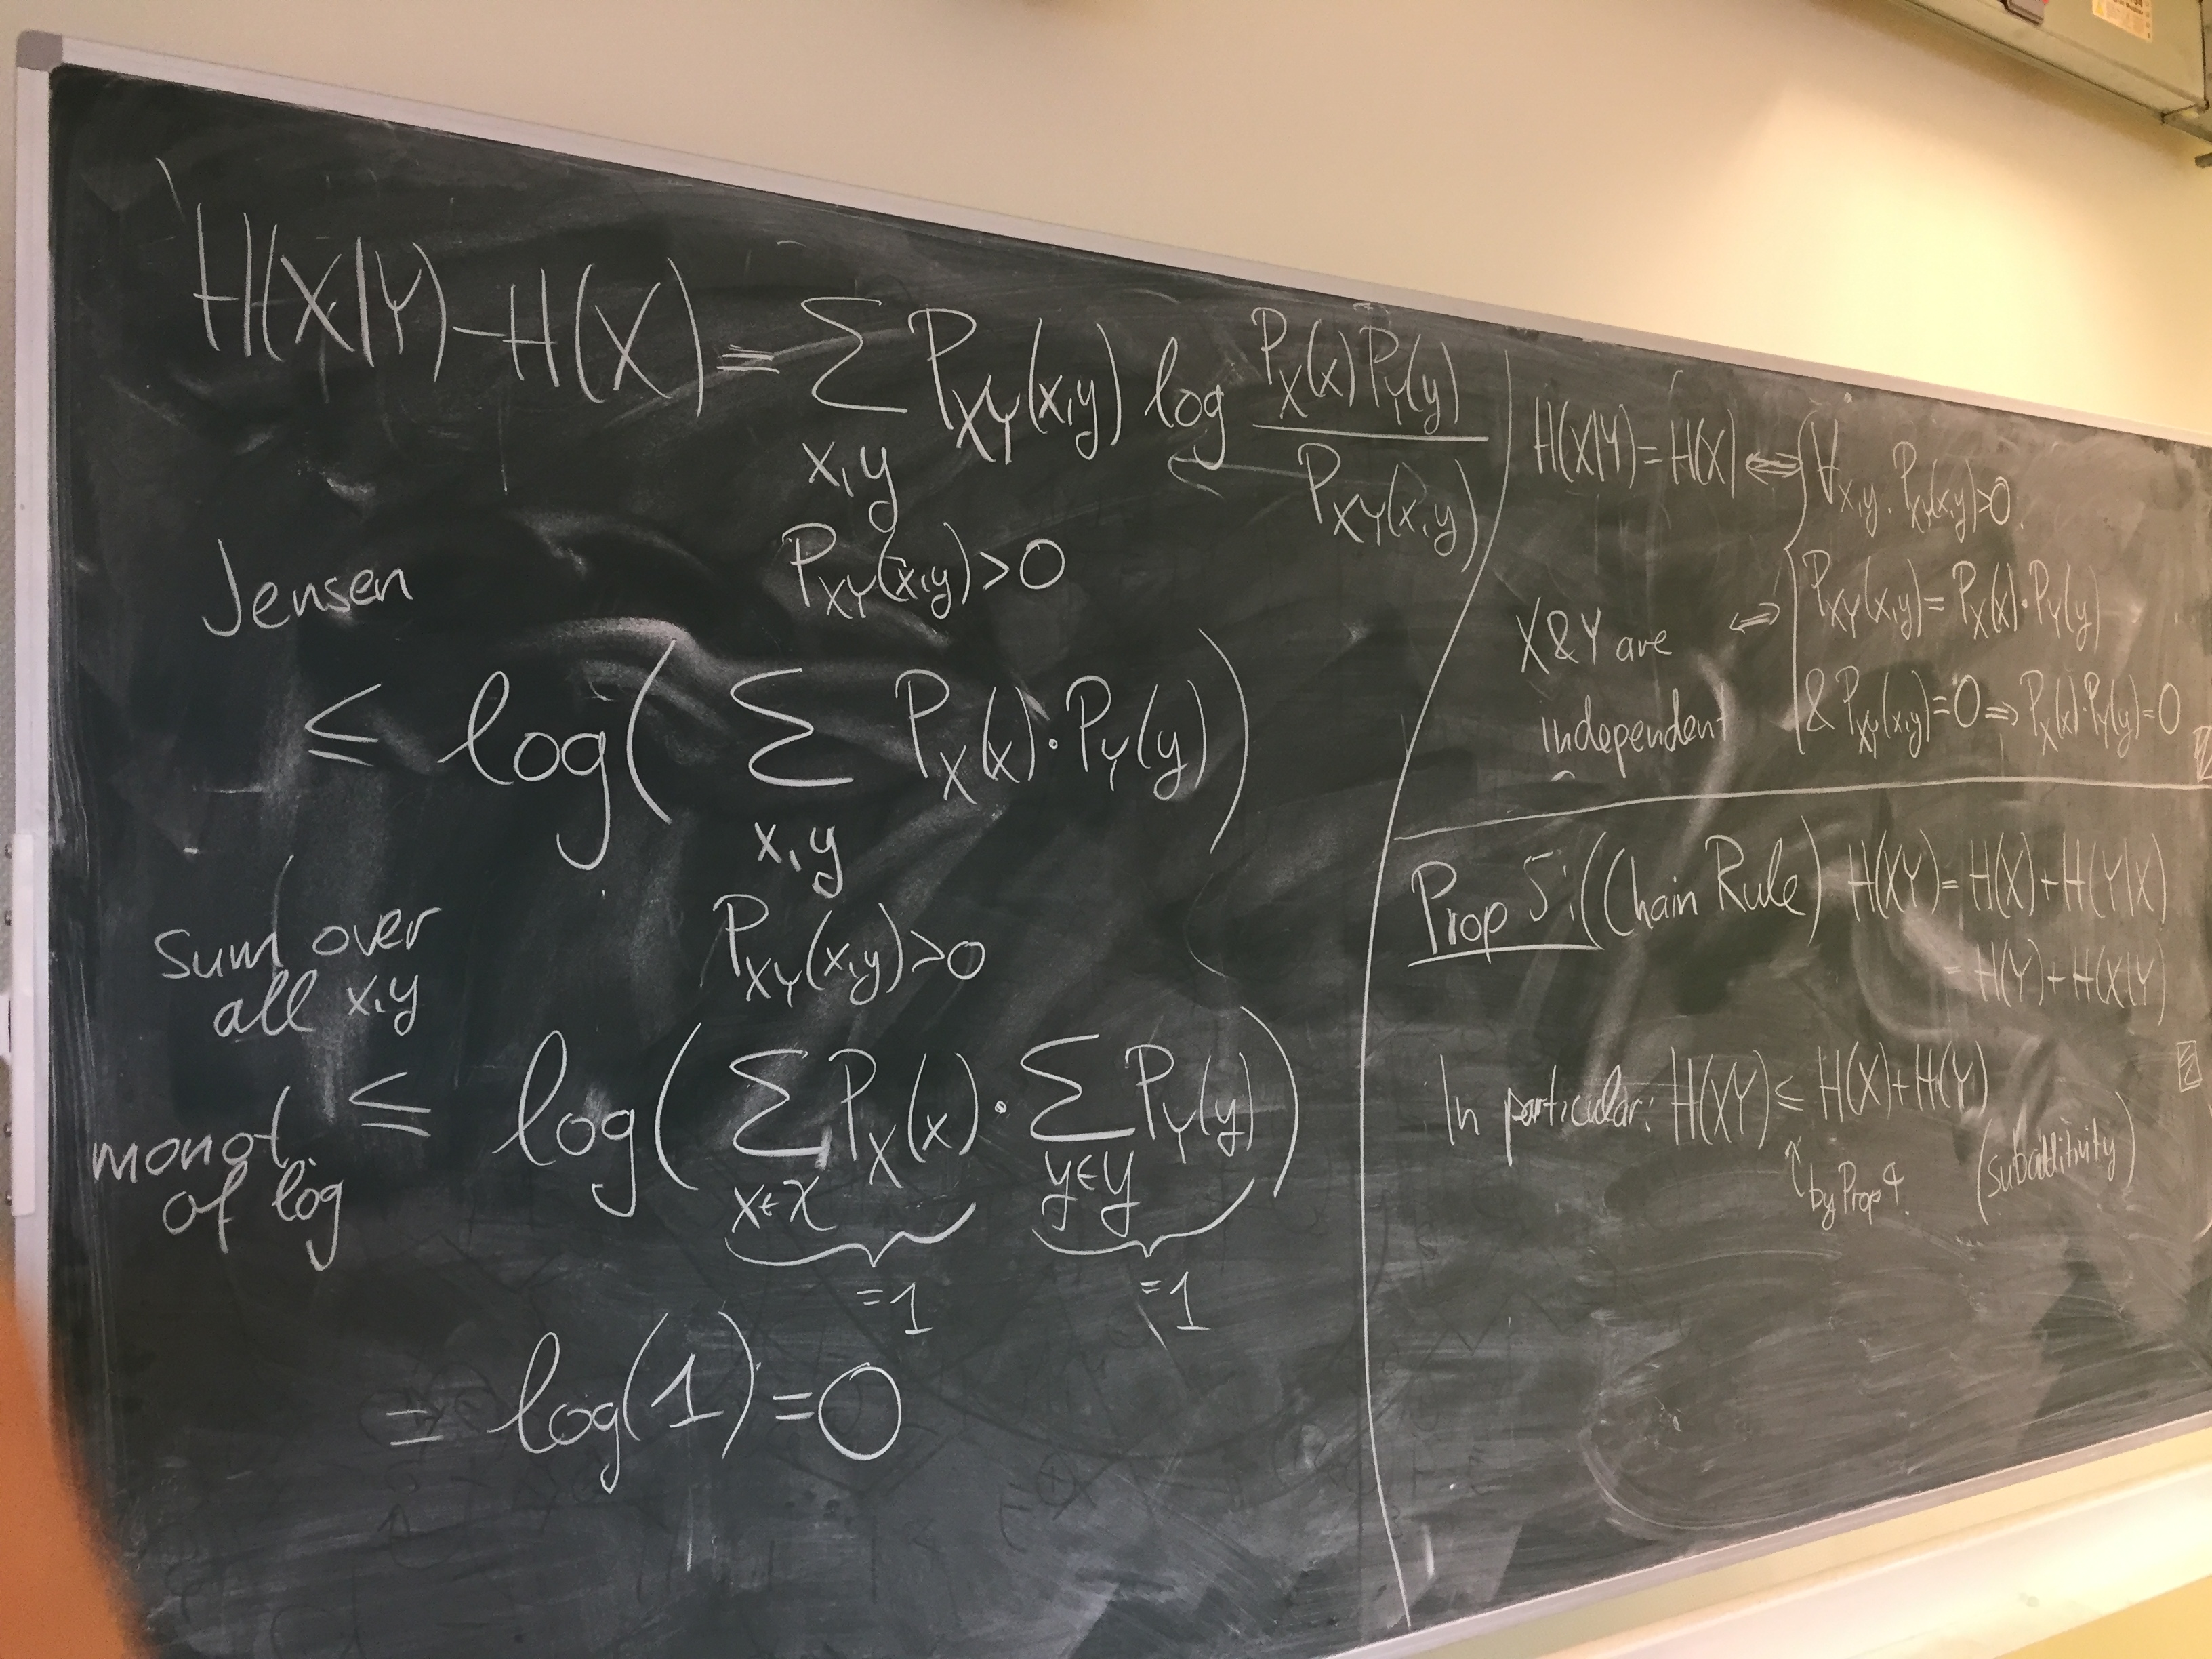 H(X|Y) - H(X) = ∑ P_XY(x,y) log P_X(x) P_Y(y) / P_XY(x,y)
x,y
P_XY(x,y) > 0
Jensen
≤ log( ∑ P_X(x) · P_Y(y) )
x,y
P_XY(x,y) > 0
sum over
all x,y
monot.
of log
≤ log( ∑ P_X(x) · ∑ P_Y(y) )
x∈𝒳 y∈𝒴
=1 =1
= log(1) = 0
H(X|Y) = H(X) ⇔ { ∀x,y. P_XY(x,y) > 0.
P_XY(x,y) = P_X(x) · P_Y(y)
& P_XY(x,y) = 0 ⇒ P_X(x) · P_Y(y) = 0
X & Y are ⇔
independent
Prop 5: (Chain Rule) H(XY) = H(X) + H(Y|X)
= H(Y) + H(X|Y)
In particular: H(XY) ≤ H(X) + H(Y)
by Prop 4. (subadditivity)